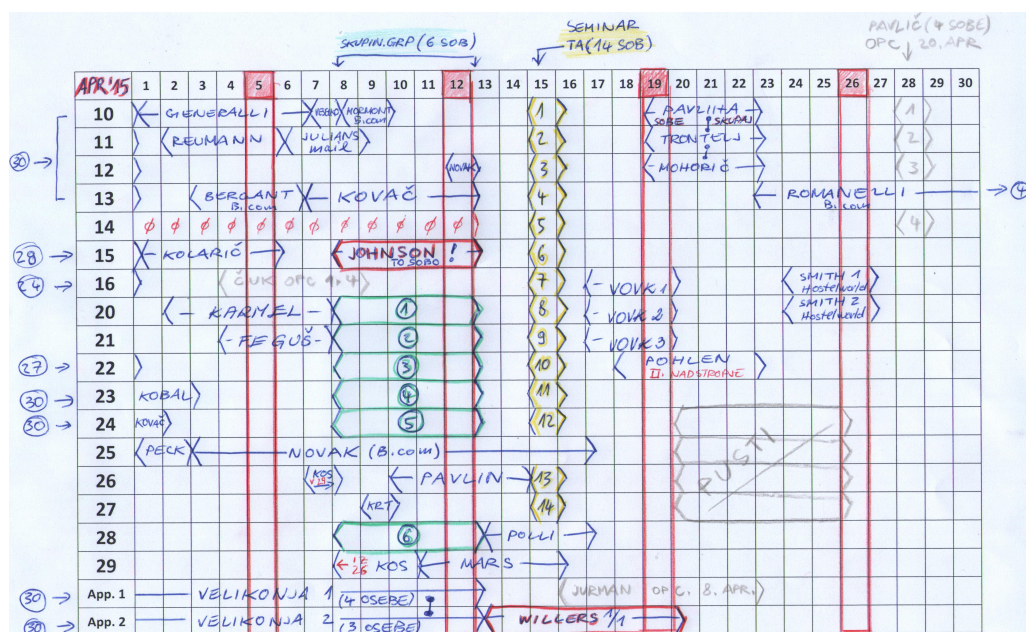 SEMINAR
TA (14 SOB)
SKUPIN. GRP (6 SOB)
PAVLIČ (4 SOBE)
OPC 20. APR
APR '15 1 2 3 4 5 6 7 8 9 10 11 12 13 14 15 16 17 18 19 20 21 22 23 24 25 26 27 28 29 30
10 GENERALLI HORMONT B.com 1 PAVLIHA 1
SOBE SKUPAJ
30 11 REUMANN JULIANS mail 2 TRONTELJ 2
12 NOVAK 3 MOHORIČ 3
13 BERGANT B.com KOVAČ 4 ROMANELLI B.com
14 ø ø ø ø ø ø ø ø ø ø ø ø 5 4
28 15 KOLARIČ JOHNSON ! TO SOBO 6
24 16 ČUK OPC 1.4 7 VOVK 1 SMITH 1 Hostelworld
20 KARMEL 1 8 VOVK 2 SMITH 2 Hostelworld
21 FEGUŠ 2 9 VOVK 3
27 22 3 10 POHLEN
II. NADSTROPJE
30 23 KOBAL 4 11
30 24 KOVAČ 5 12
25 PECK NOVAK (B.com) PUSTI
26 KOS PAVLIN 13
27 KRT 14
28 6 POLLI
29 KOS MARS
30 App. 1 VELIKONJA 1 (4 OSEBE) JURMAN OPC. 8. APR.
30 App. 2 VELIKONJA 2 (3 OSEBE) WILLERS 1/1